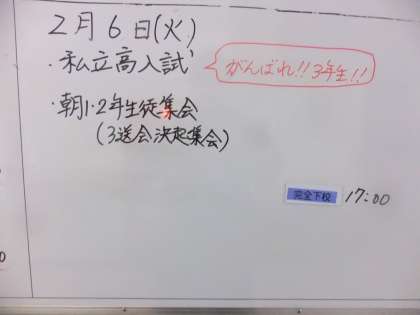 2月6日(火)
・私立高入試
がんばれ!!3年生!!
・朝1・2年生徒集会
(3送会決起集会)
完全下校 17:00